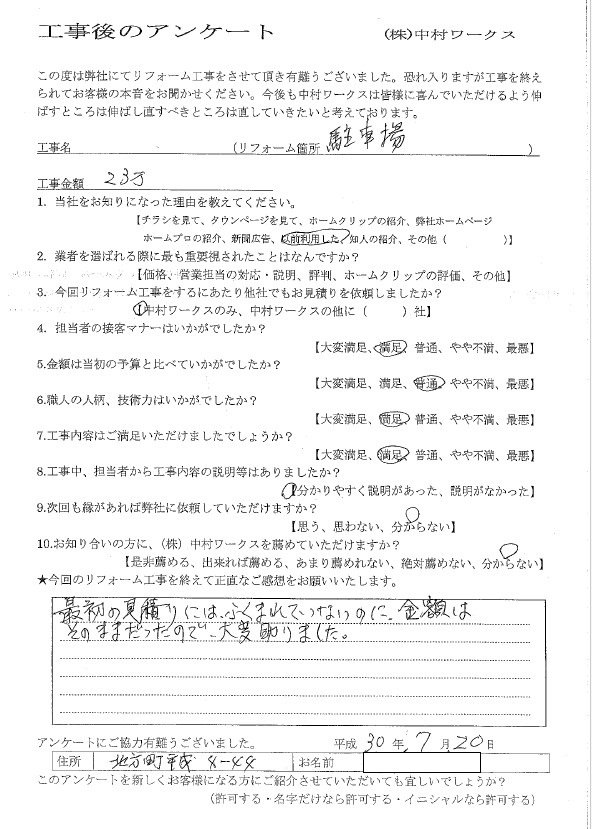 工事後のアンケート (株)中村ワークス
この度は弊社にてリフォーム工事をさせて頂き有難うございました。恐れ入りますが工事を終え
られてお客様の本音をお聞かせください。今後も中村ワークスは皆様に喜んでいただけるよう伸
ばすところは伸ばし直すべきところは直していきたいと考えております。
工事名 (リフォーム箇所 駐車場 )
工事金額 23万
1. 当社をお知りになった理由を教えてください。
【チラシを見て、タウンページを見て、ホームクリップの紹介、弊社ホームページ
ホームプロの紹介、新聞広告、以前利用した、知人の紹介、その他( )】
2. 業者を選ばれる際に最も重要視されたことはなんですか?
【価格、営業担当の対応・説明、評判、ホームクリップの評価、その他】
3. 今回リフォーム工事をするにあたり他社でもお見積りを依頼しましたか?
【中村ワークスのみ、中村ワークスの他に( )社】
4. 担当者の接客マナーはいかがでしたか?
【大変満足、満足、普通、やや不満、最悪】
5.金額は当初の予算と比べていかがでしたか?
【大変満足、満足、普通、やや不満、最悪】
6.職人の人柄、技術力はいかがでしたか?
【大変満足、満足、普通、やや不満、最悪】
7.工事内容はご満足いただけましたでしょうか?
【大変満足、満足、普通、やや不満、最悪】
8.工事中、担当者から工事内容の説明等はありましたか?
【分かりやすく説明があった、説明がなかった】
9.次回も縁があれば弊社に依頼していただけますか?
【思う、思わない、分からない】
10.お知り合いの方に、(株)中村ワークスを薦めていただけますか?
【是非薦める、出来れば薦める、あまり薦めれない、絶対薦めない、分からない】
★今回のリフォーム工事を終えて正直なご感想をお願いいたします。
最初の見積りにはふくまれていないのに、金額は
そのままだったので、大変助りました。
アンケートにご協力有難うございました。 平成 30 年 7 月 20 日
住所 4-44 お名前
このアンケートを新しくお客様になる方にご紹介させていただいても宜しいでしょうか?
(許可する・名字だけなら許可する・イニシャルなら許可する)